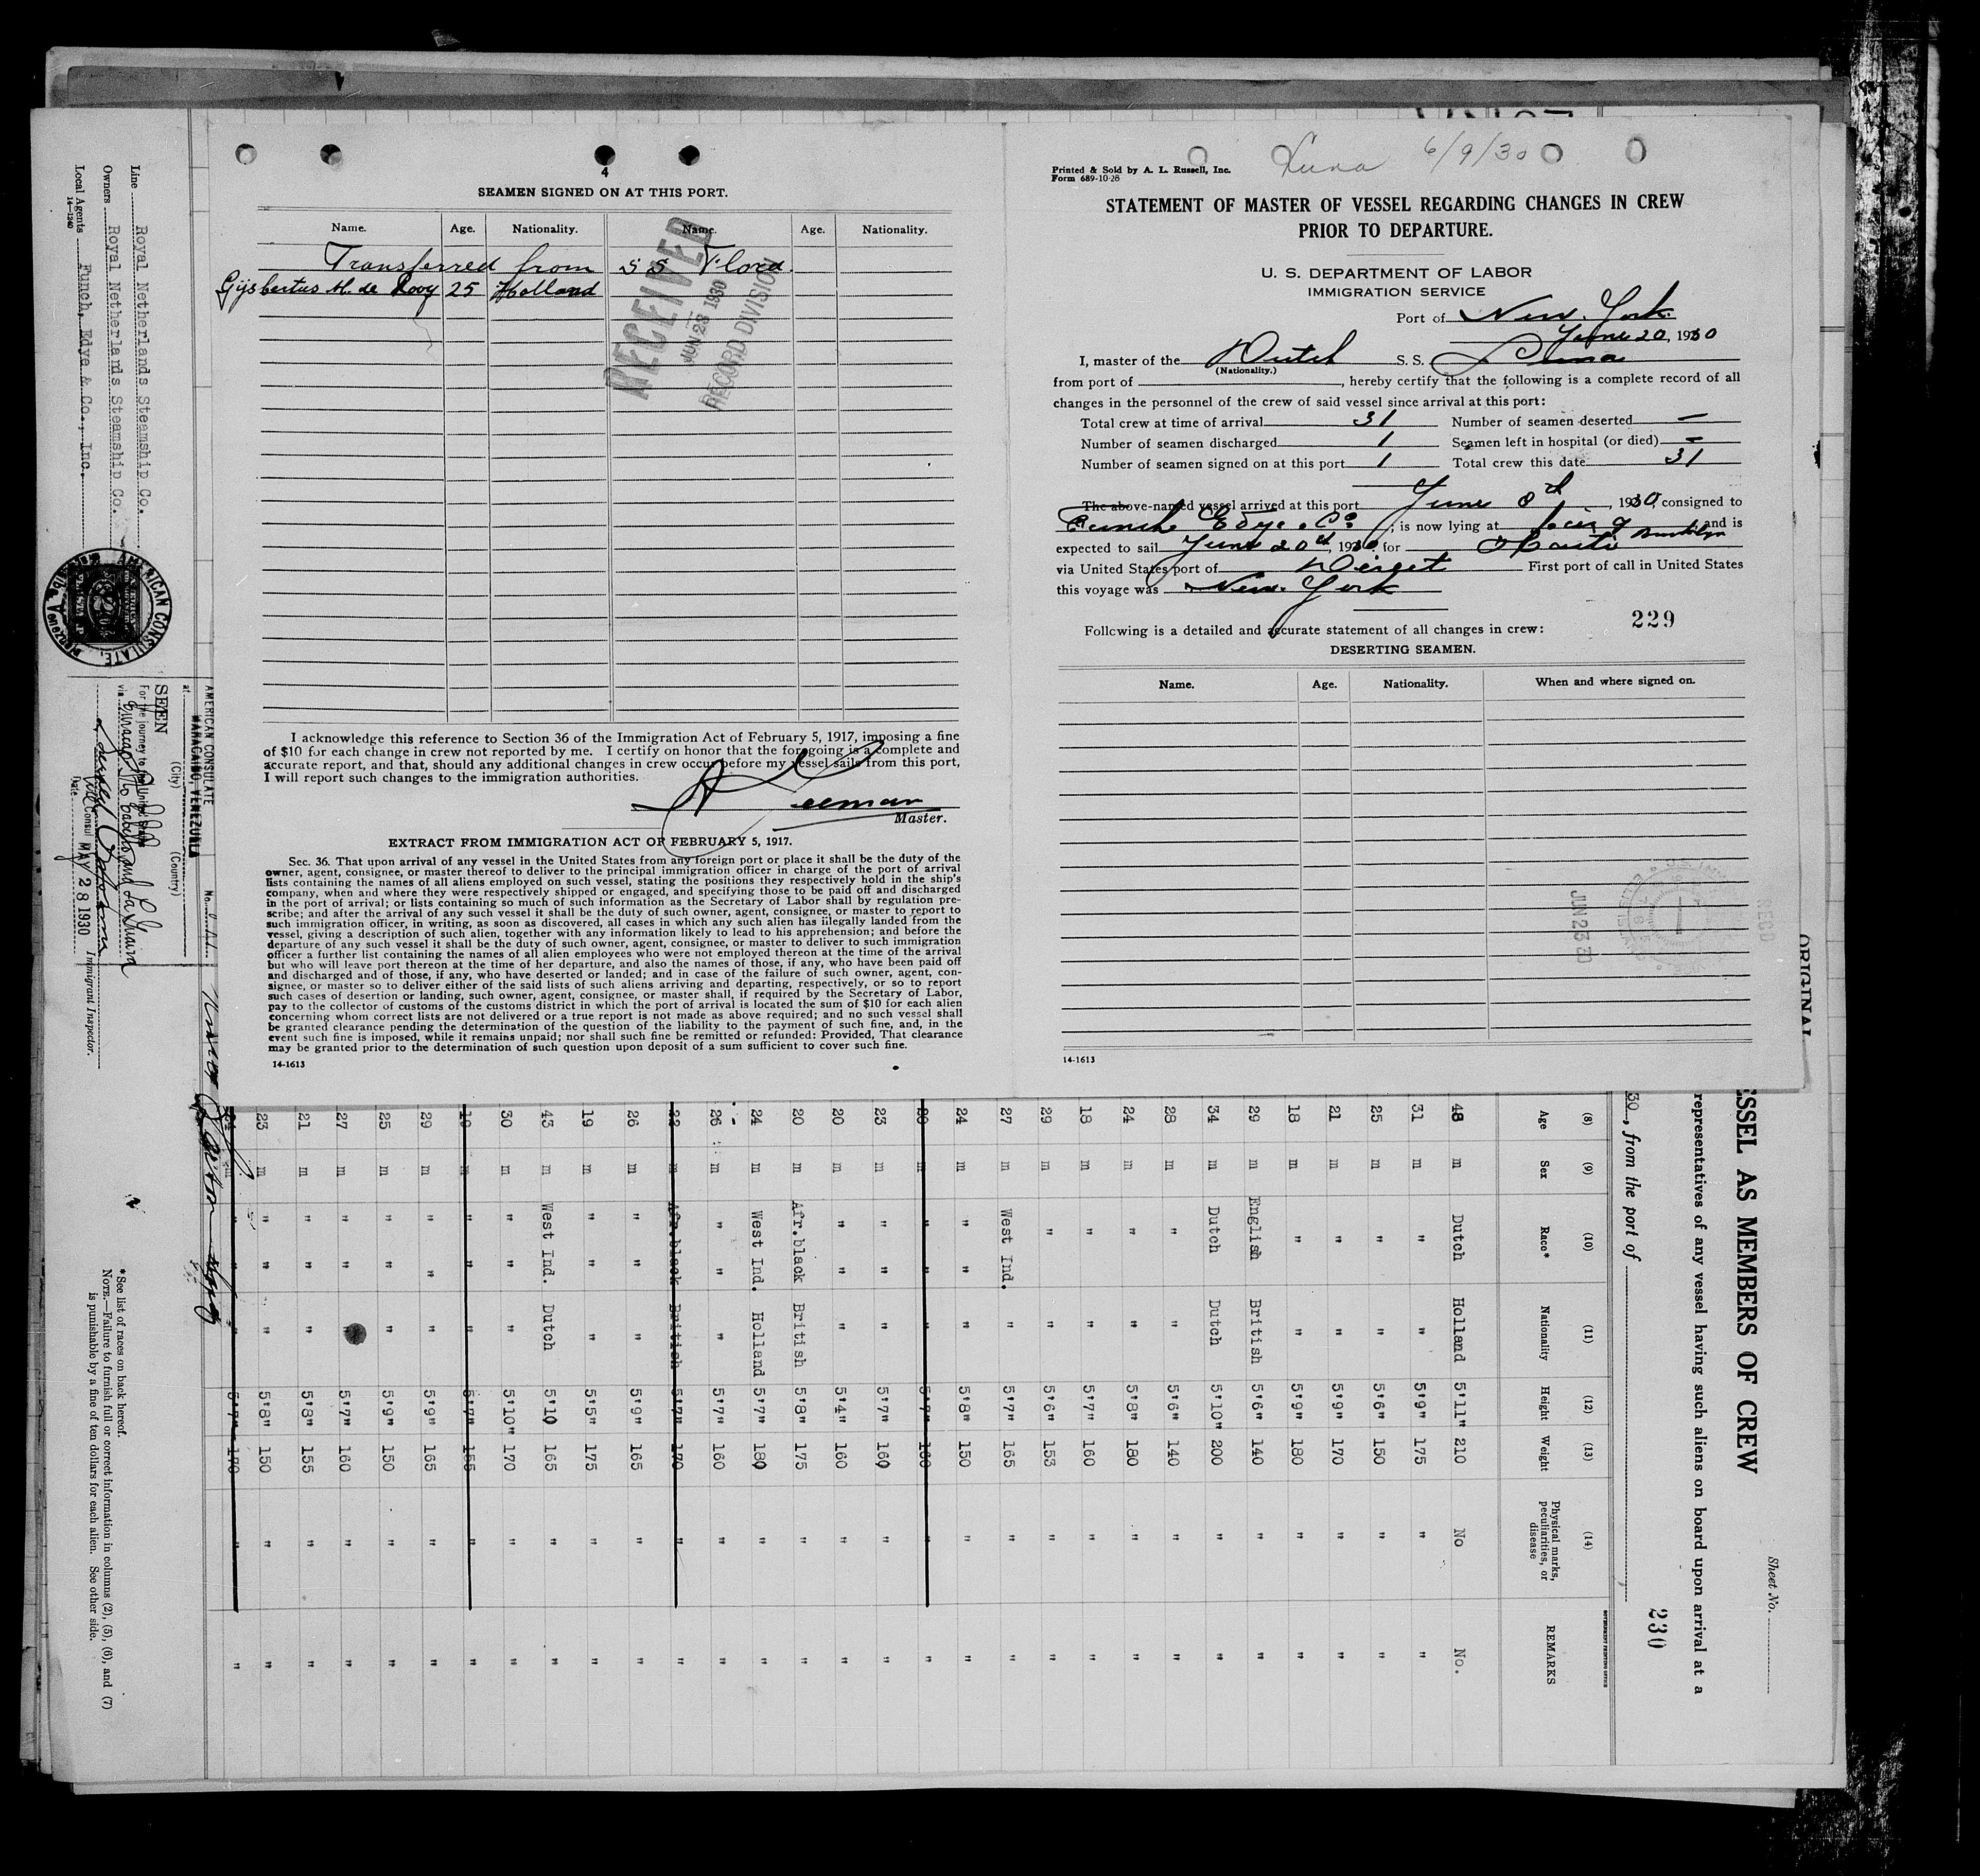 4
SEAMEN SIGNED ON AT THIS PORT.
Name. Age. Nationality. Name. Age. Nationality.
Transferred from S S Flora
Gijsbertus M. de Rooy 25 Holland
RECEIVED
JUN 23 1930
RECORD DIVISION
I acknowledge this reference to Section 36 of the Immigration Act of February 5, 1917, imposing a fine
of $10 for each change in crew not reported by me. I certify on honor that the foregoing is a complete and
accurate report, and that, should any additional changes in crew occur before my vessel sails from this port,
I will report such changes to the immigration authorities.
Master.
EXTRACT FROM IMMIGRATION ACT OF FEBRUARY 5, 1917.
Sec. 36. That upon arrival of any vessel in the United States from any foreign port or place it shall be the duty of the
owner, agent, consignee, or master thereof to deliver to the principal immigration officer in charge of the port of arrival
lists containing the names of all aliens employed on such vessel, stating the positions they respectively hold in the ship's
company, when and where they were respectively shipped or engaged, and specifying those to be paid off and discharged
in the port of arrival; or lists containing so much of such information as the Secretary of Labor shall by regulation pre-
scribe; and after the arrival of any such vessel it shall be the duty of such owner, agent, consignee, or master to report to
such immigration officer, in writing, as soon as discovered, all cases in which any such alien has illegally landed from the
vessel, giving a description of such alien, together with any information likely to lead to his apprehension; and before the
departure of any such vessel it shall be the duty of such owner, agent, consignee, or master to deliver to such immigration
officer a further list containing the names of all alien employees who were not employed thereon at the time of the arrival
but who will leave port thereon at the time of her departure, and also the names of those, if any, who have been paid off
and discharged and of those, if any, who have deserted or landed; and in case of the failure of such owner, agent, con-
signee, or master so to deliver either of the said lists of such aliens arriving and departing, respectively, or so to report
such cases of desertion or landing, such owner, agent, consignee, or master shall, if required by the Secretary of Labor,
pay to the collector of customs of the customs district in which the port of arrival is located the sum of $10 for each alien
concerning whom correct lists are not delivered or a true report is not made as above required; and no such vessel shall
be granted clearance pending the determination of the question of the liability to the payment of such fine, and, in the
event such fine is imposed, while it remains unpaid; nor shall such fine be remitted or refunded: Provided, That clearance
may be granted prior to the determination of such question upon deposit of a sum sufficient to cover such fine.
14-1613
Luna 6/9/30
Printed & Sold by A. L. Russell, Inc.
Form 689-10-28
STATEMENT OF MASTER OF VESSEL REGARDING CHANGES IN CREW
PRIOR TO DEPARTURE.
U. S. DEPARTMENT OF LABOR
IMMIGRATION SERVICE
Port of New York
June 20, 1930
I, master of the Dutch S. S. Luna
(Nationality.)
from port of , hereby certify that the following is a complete record of all
changes in the personnel of the crew of said vessel since arrival at this port:
Total crew at time of arrival 31 Number of seamen deserted —
Number of seamen discharged 1 Seamen left in hospital (or died) —
Number of seamen signed on at this port 1 Total crew this date 31
The above-named vessel arrived at this port June 8th, 1930, consigned to
Funch Edye & Co, is now lying at Brooklyn and is
expected to sail June 20th, 1930, for Haiti
via United States port of Direct First port of call in United States
this voyage was New York
229
Following is a detailed and accurate statement of all changes in crew:
DESERTING SEAMEN.
Name. Age. Nationality. When and where signed on.
REC'D
JUN 23
14-1613
ORIGINAL
Line Royal Netherlands Steamship Co.
Owners Royal Netherlands Steamship Co.
Local Agents Funch, Edye & Co., Inc.
14-1240
AMERICAN CONSULATE
AMERICAN CONSULATE
MARACAIBO, VENEZUELA
No.
at
(City) (Country)
SEEN
For the journey to the United States
via Curacao, Pto Cabello and La Guaira
Vice Consul MAY 28 1930
Date
Immigrant Inspector.
*See list of races on back hereof.
NOTE.—Failure to furnish full or correct information in columns (2), (5), (6), and (7)
is punishable by a fine of ten dollars for each alien. See other side.
Sheet No.
ESSEL AS MEMBERS OF CREW
representatives of any vessel having such aliens on board upon arrival at a
30, from the port of
230
GOVERNMENT PRINTING OFFICE
(8) (9) (10) (11) (12) (13) (14)
Age Sex Race* Nationality Height Weight Physical marks, peculiarities, or disease REMARKS
48 m Dutch Holland 5'11" 210 No No.
31 m " " 5'9" 175 " "
25 m " " 5'6" 150 " "
21 m " " 5'9" 170 " "
18 m " " 5'9" 180 " "
29 m English British 5'6" 140 " "
34 m Dutch Dutch 5'10" 200 " "
28 m " " 5'6" 140 " "
24 m " " 5'8" 180 " "
18 m " " 5'7" 160 " "
29 m " " 5'6" 153 " "
27 m West Ind. " 5'7" 165 " "
24 m " " " 5'8" 150 " "
m " " " 5'7" 160 " "
23 m " " " 5'7" 160 " "
20 m " " " 5'4" 160 " "
20 m Afr.black British 5'8" 175 " "
24 m West Ind. Holland 5'7" 180 " "
26 m " " " 5'7" 160 " "
22 m Afr.black British 5'7" 170 " "
26 m " " " 5'9" 165 " "
19 m " " " 5'5" 175 " "
43 m West Ind. Dutch 5'10 165 " "
30 m " " " 5'10" 170 " "
19 m " " " 5'7" 155 " "
29 m " " " 5'9" 165 " "
25 m " " " 5'9" 150 " "
27 m " " " 5'7" 160 " "
21 m " " " 5'8" 155 " "
23 m " " " 5'8" 150 " "
m " " " 5'7" 170 " "